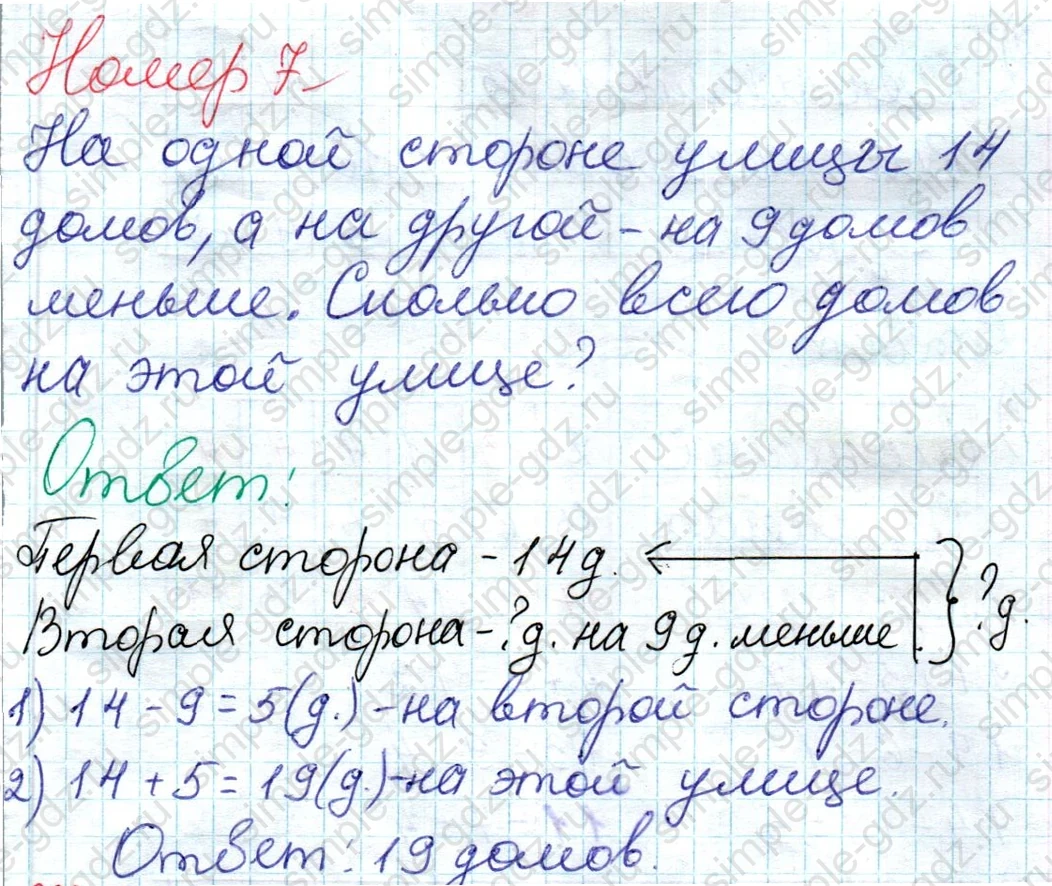 Номер 7
На одной стороне улицы 14
домов, а на другой - на 9 домов
меньше. Сколько всего домов
на этой улице?
Ответ:
Первая сторона - 14 д.
Вторая сторона - ? д. на 9 д. меньше. } ? д.
1) 14 - 9 = 5 (д.) - на второй стороне.
2) 14 + 5 = 19 (д.) - на этой улице.
Ответ: 19 домов.
simple-gdz.ru